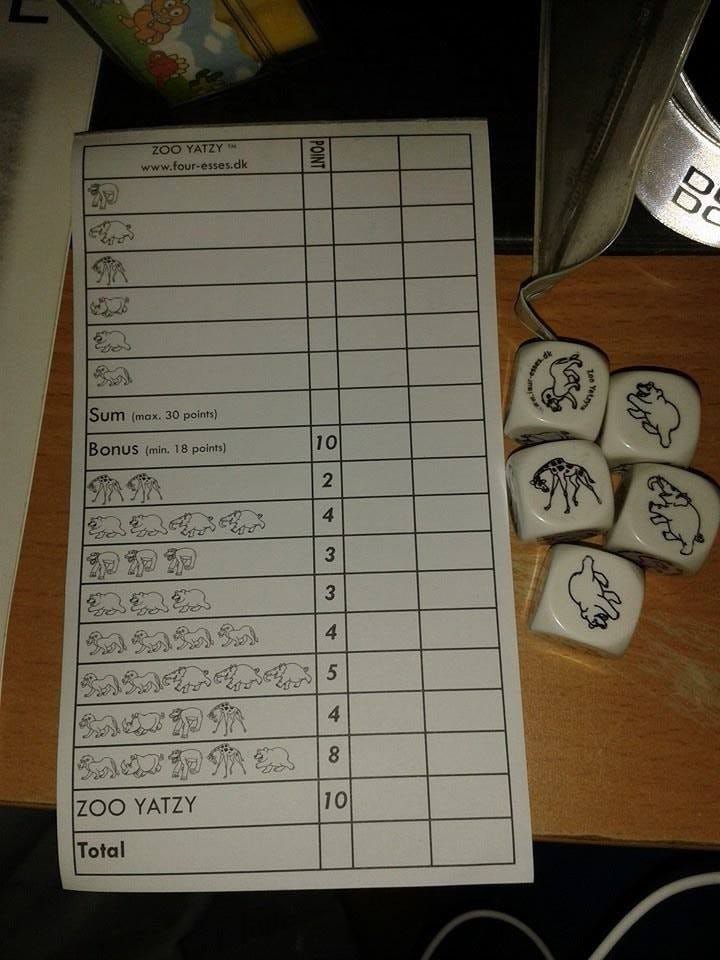 E
ZOO YATZY ™
www.four-esses.dk
POINT
Sum (max. 30 points)
Bonus (min. 18 points) 10
2
4
3
3
4
5
4
8
ZOO YATZY 10
Total
www.four-esses.dk
Zoo Yatzy